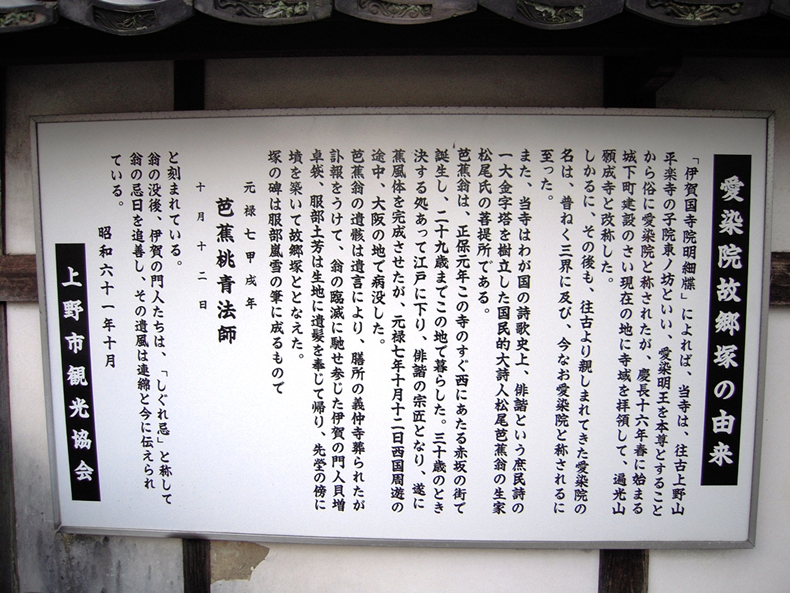 愛染院故郷塚の由来
「伊賀国寺院明細牒」によれば、当寺は、往古上野山
平楽寺の子院東ノ坊といい、愛染明王を本尊とすること
から俗に愛染院と称されたが、慶長十六年春に始まる
城下町建設のさい現在の地に寺域を拝領して、遍光山
願成寺と改称した。
しかるに、その後も、往古より親しまれてきた愛染院の
名は、普ねく三界に及び、今なお愛染院と称されるに
至った。
また、当寺はわが国の詩歌史上、俳諧という庶民詩の
一大金字塔を樹立した国民的大詩人松尾芭蕉翁の生家
松尾氏の菩提所である。
芭蕉翁は、正保元年この寺のすぐ西にあたる赤坂の街で
誕生し、二十九歳までこの地で暮らした。三十歳のとき
決する処あって江戸に下り、俳諧の宗匠となり、遂に
蕉風体を完成させたが、元禄七年十月十二日西国周遊の
途中、大阪の地で病没した。
芭蕉翁の遺骸は遺言により、膳所の義仲寺葬られたが
訃報をうけて、翁の臨滅に馳せ参じた伊賀の門人貝増
卓袋、服部土芳は生地に遺髪を奉じて帰り、先塋の傍に
墳を築いて故郷塚ととなえた。
塚の碑は服部嵐雪の筆に成るもので
元禄七甲戌年
芭蕉桃青法師
十月十二日
と刻まれている。
翁の没後、伊賀の門人たちは、「しぐれ忌」と称して
翁の忌日を追善し、その遺風は連綿と今に伝えられ
ている。
昭和六十一年十月
上野市観光協会